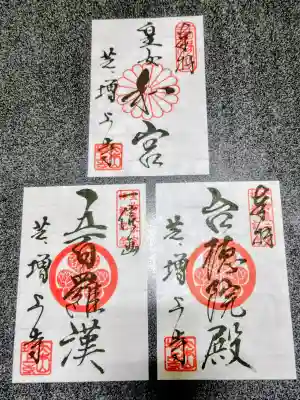 奉拝
皇女和宮
芝 増上寺
五百羅漢
芝 増上寺
奉拝
台徳院殿
芝 増上寺